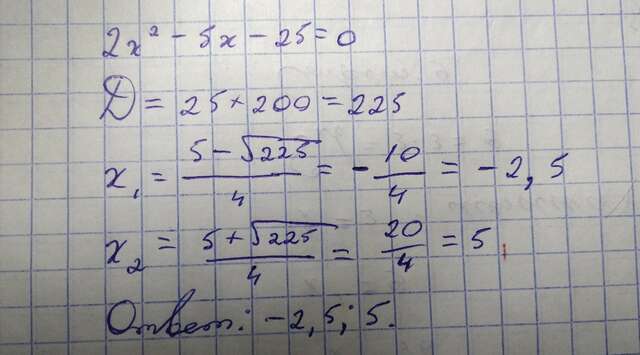 2x² - 5x - 25 = 0
D = 25 + 200 = 225
x₁ = (5 - √225)/4 = -10/4 = -2,5
x₂ = (5 + √225)/4 = 20/4 = 5
Ответ: -2,5; 5.